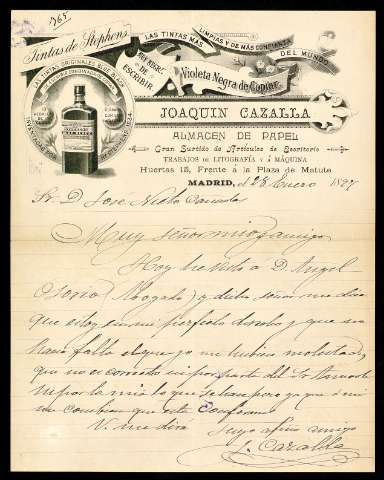 1965
Tintas de Stephens
LAS TINTAS MÁS LIMPIAS Y DE MÁS CONFIANZA DEL MUNDO
DE ESCRIBIR
Violeta Negra de Copiar
LAS TINTAS ORIGINALES BLUE BLACK
JOAQUIN CAZALLA
ALMACEN DE PAPEL
Gran Surtido de Artículos de Escritorio
TRABAJOS DE LITOGRAFÍA Y Á MÁQUINA
Huertas 13, Frente á la Plaza de Matute
MADRID, el 28 Enero 1897
Sr. D. Jose Nieto
Muy señor mio y amigo
Hoy he visto á D. Angel
Osorio (Abogado) y dicho señor me dice
que estoy en mi perfecto derecho y que
hacia falta el que yo me hubiera molestado,
que no es correcto ni por parte del Sr.
ni por la mia lo que ya que á mi
me combiene que este Conforme
V. me dira Suyo afmo amigo
J. Cazalla